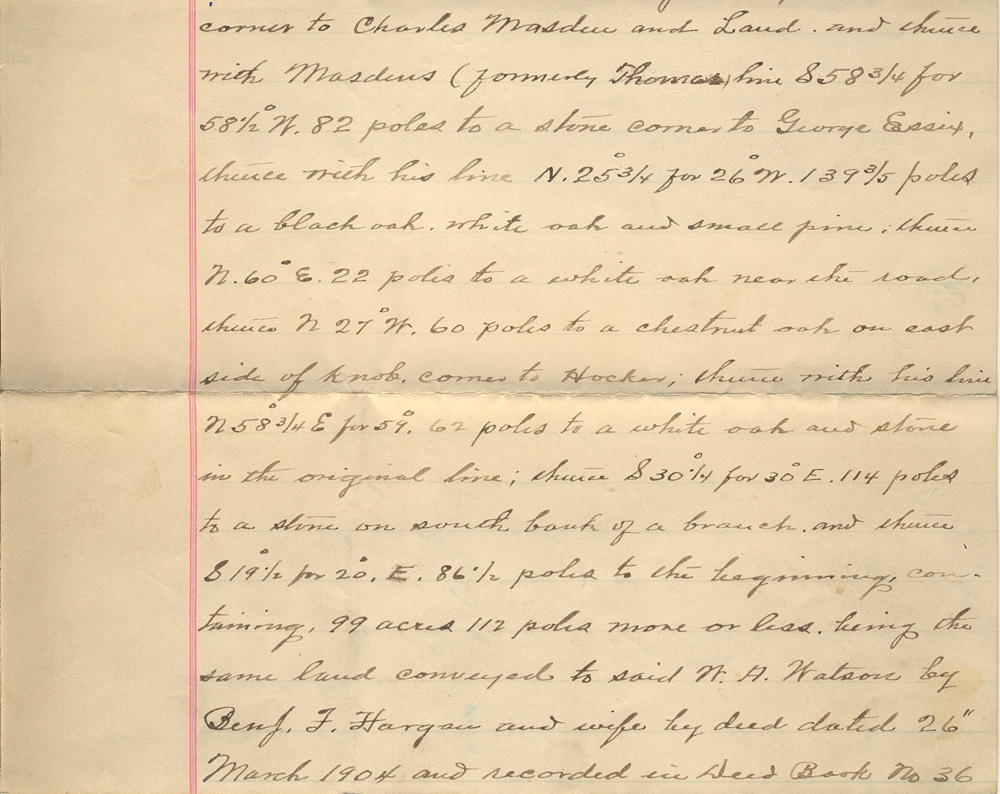 corner to Charles Masden and Laud. and thence
with Masdens (formerly Thomas) line S 58 3/4 for
58 1/2° W. 82 poles to a stone corner to George Essex,
thence with his line N. 25° 3/4 for 26° W. 139 3/5 poles
to a black oak. white oak and small pine; thence
N. 60° E. 22 poles to a white oak near the road,
thence N 27° W. 60 poles to a chestnut oak on east
side of knob. corner to Hocker; thence with his line
N 58° 3/4 E for 59°. 62 poles to a white oak and stone
in the original line; thence S 30° 1/4 for 30° E. 114 poles
to a stone on south bank of a branch. and thence
S 19° 1/2 for 20°. E. 86 1/2 poles to the beginning, con-
taining, 99 acres 112 poles more or less. being the
same land conveyed to said W. A. Watson by
Benj. F. Hargan and wife by deed dated 26"
March 1904 and recorded in Deed Book No 36